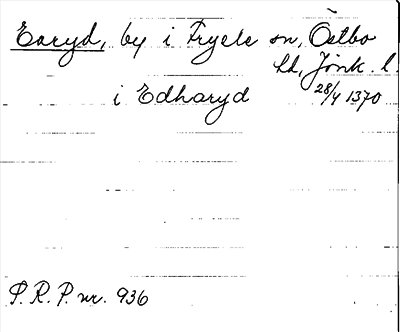 Earyd, by i Fryele sn, Östbo
hd, Jönk. l.
i Edharyd 28/4 1370
P. R. P. nr. 936